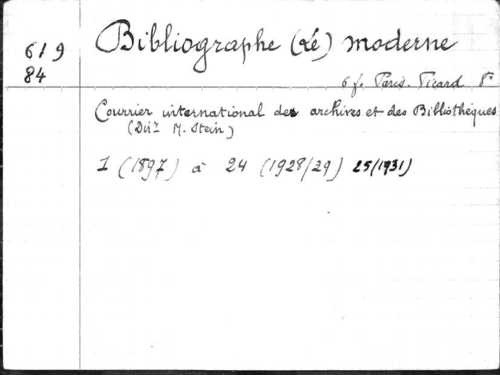 619
84
Bibliographe (Le) moderne
6 f. Paris. Picard
Courrier international des archives et des Bibliothèques
(Dir? M. Stein)
1 (1897) à 24 (1928/29) 25 (1931)